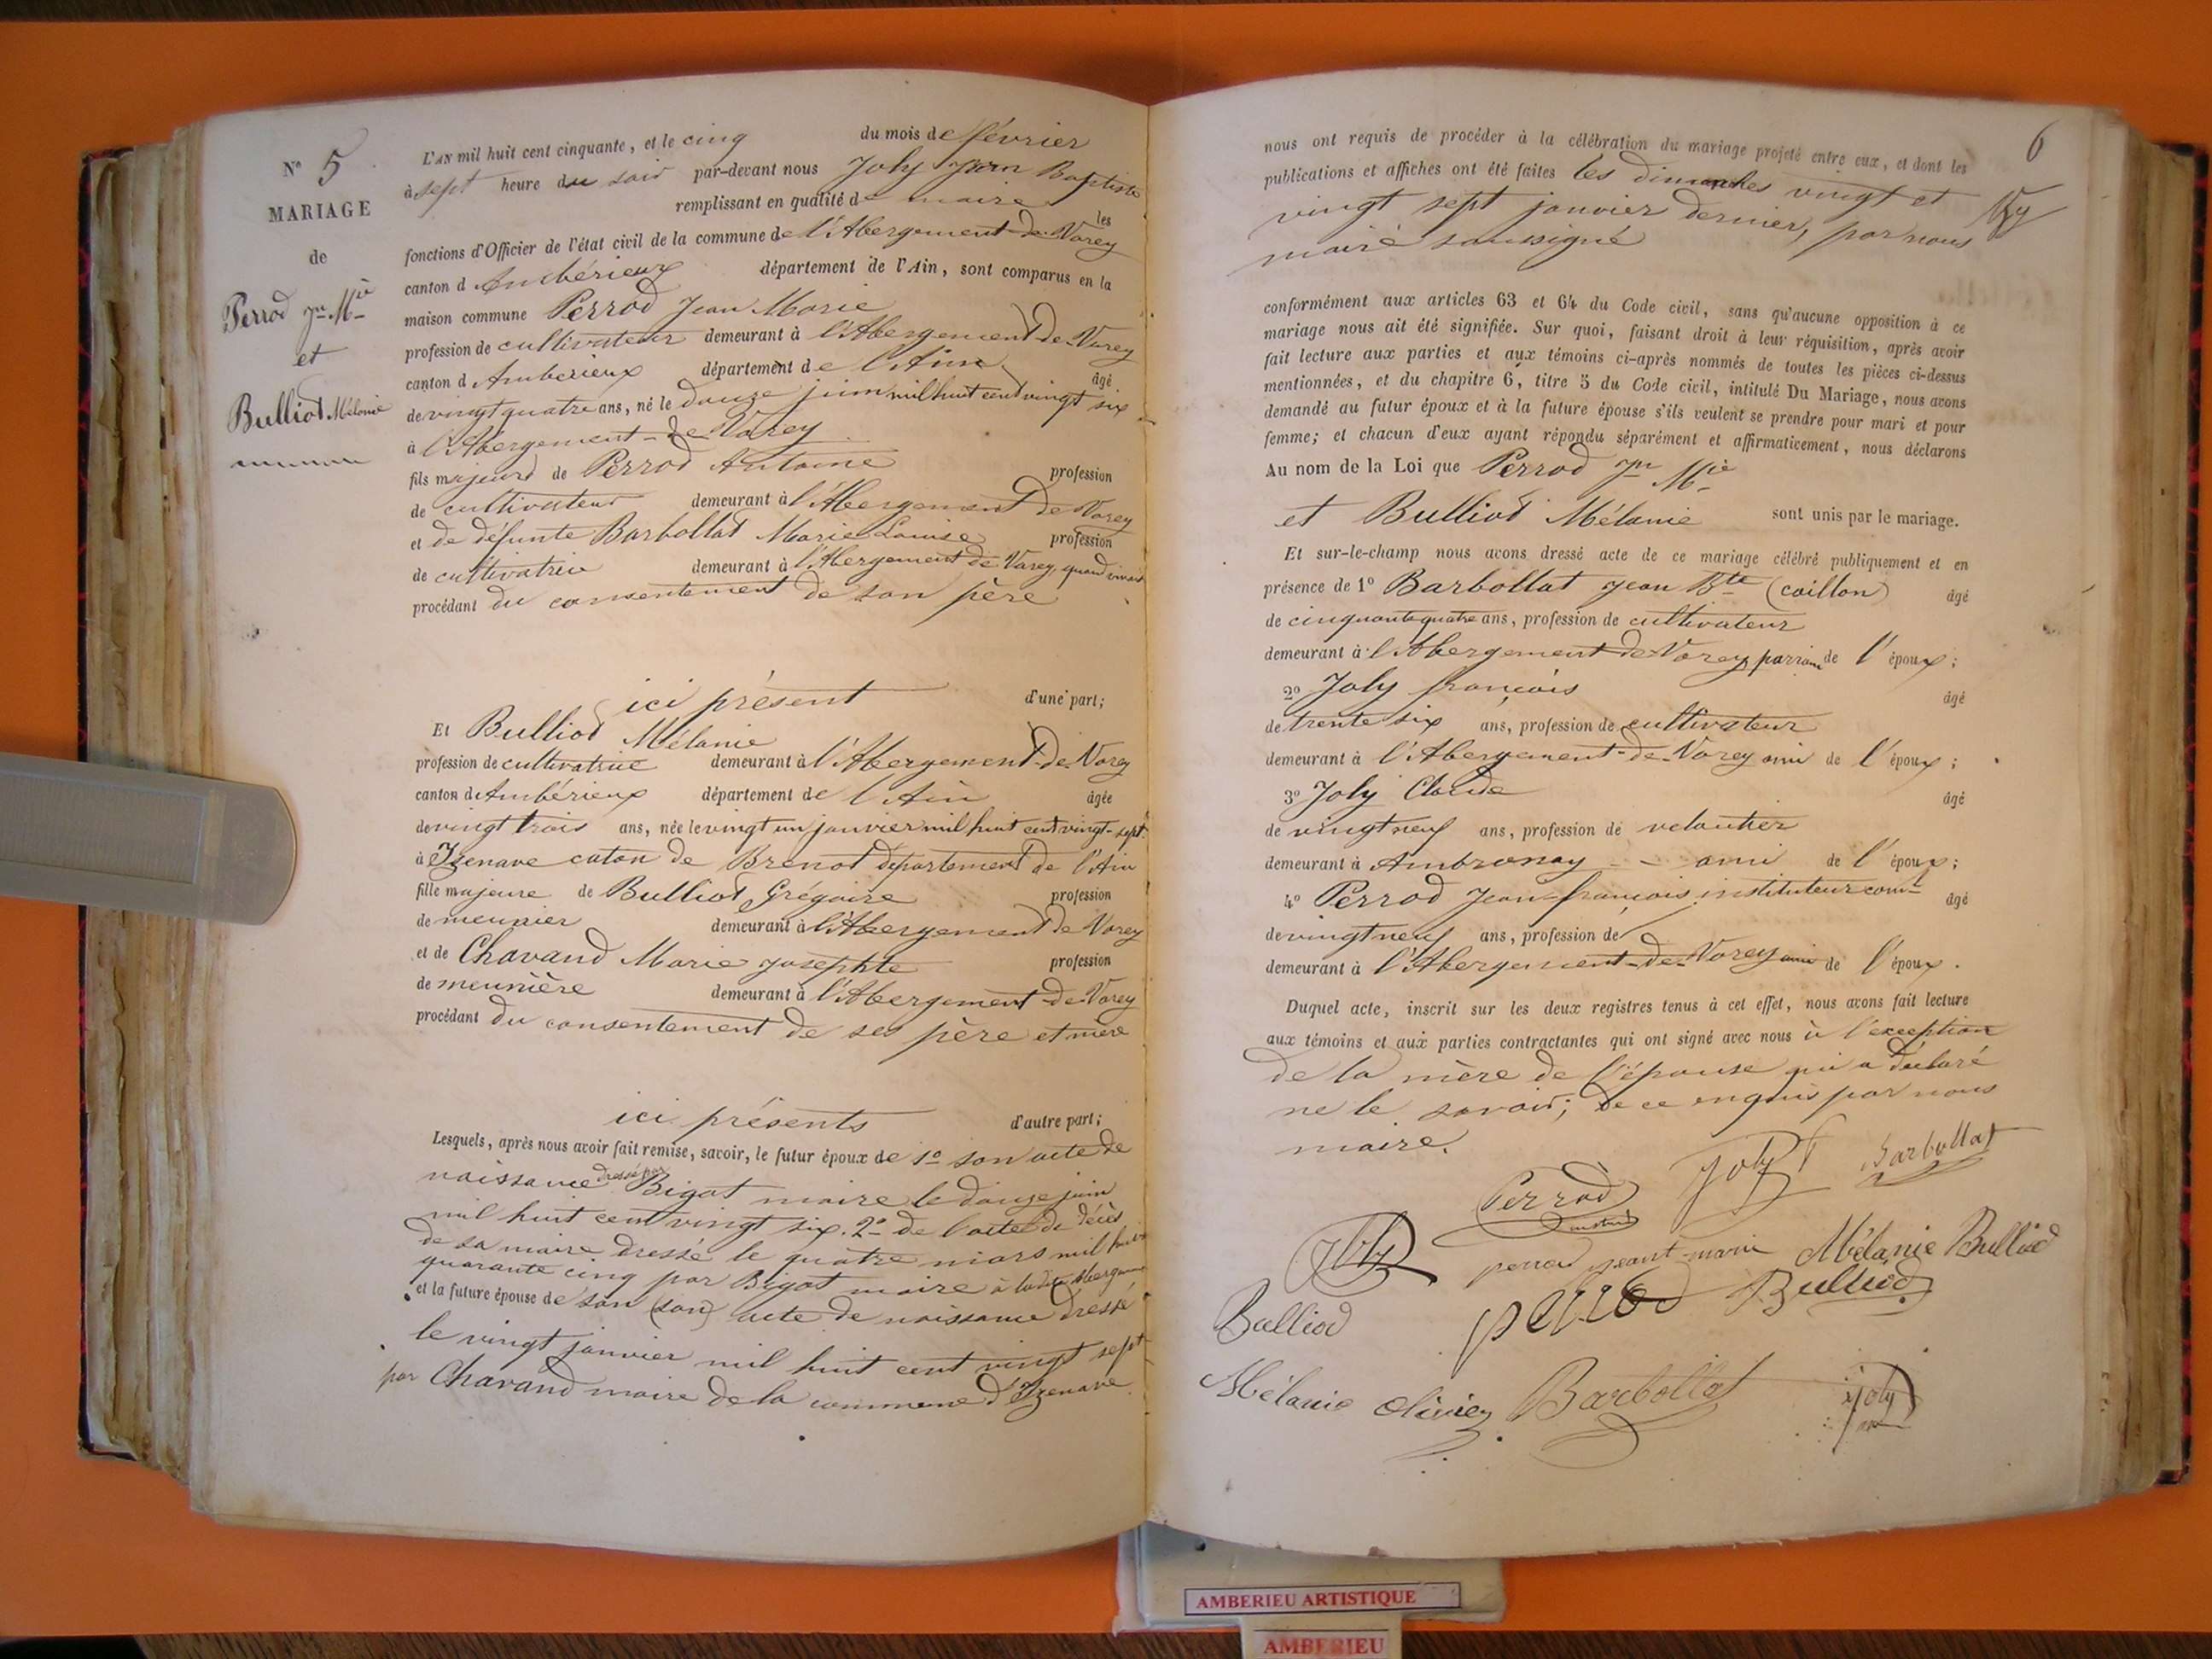 N° 5
MARIAGE
de
Perrod Jn Mie
et
Bulliod Mélanie
L'AN mil huit cent cinquante, et le cinq du mois de février
à sept heure du soir par-devant nous Joly Jean Baptiste
remplissant en qualité de maire les
fonctions d'Officier de l'état civil de la commune de l'Abergement-de-Varey
canton d'Ambérieux département de l'Ain, sont comparus en la
maison commune Perrod Jean Marie
profession de cultivateur demeurant à l'Abergement-de-Varey
canton d'Ambérieux département de l'Ain âgé
de vingt quatre ans, né le douze juin mil huit cent vingt six
à l'Abergement-de-Varey
fils majeur de Perrod Antoine profession
de cultivateur demeurant à l'Abergement de Varey
et de défunte Barbollat Marie Louise profession
de cultivatrice demeurant à l'Abergement de Varey, quand vivait
procédant du consentement de son père
ici présent d'une part;
Et Bulliod Mélanie
profession de cultivatrice demeurant à l'Abergement-de-Varey
canton d'Ambérieux département de l'Ain âgée
de vingt trois ans, née le vingt un janvier mil huit cent vingt-sept
à Izenave caton de Brenod département de l'Ain
fille majeure de Bulliod Grégoire profession
de meunier demeurant à l'Abergement de Varey
et de Chavand Marie Josephte profession
de meunière demeurant à l'Abergement-de-Varey
procédant du consentement de ses père et mère
ici présents d'autre part;
Lesquels, après nous avoir fait remise, savoir, le futur époux de 1° son acte de
naissance dressé par Bigot maire le douze juin
mil huit cent vingt six. 2° de l'acte de décès
de sa maire dressé le quatre mars mil huit
quarante cinq par Bigot maire à ladite Abergement
et la future épouse de son (son) acte de naissance dressé
le vingt janvier mil huit cent vingt sept
par Chavand maire de la commune d'Izenave
6
nous ont requis de procéder à la célébration du mariage projeté entre eux, et dont les
publications et affiches ont été faites les dimanches vingt et
vingt sept janvier dernier, par nous
maire soussigné
conformément aux articles 63 et 64 du Code civil, sans qu'aucune opposition à ce
mariage nous ait été signifiée. Sur quoi, faisant droit à leur réquisition, après avoir
fait lecture aux parties et aux témoins ci-après nommés de toutes les pièces ci-dessus
mentionnées, et du chapitre 6, titre 5 du Code civil, intitulé Du Mariage, nous avons
demandé au futur époux et à la future épouse s'ils veulent se prendre pour mari et pour
femme; et chacun d'eux ayant répondu séparément et affirmativement, nous déclarons
Au nom de la Loi que Perrod Jn Mie
et Bulliod Mélanie sont unis par le mariage.
Et sur-le-champ nous avons dressé acte de ce mariage célébré publiquement et en
présence de 1° Barbollat Jean Bte (caillon) âgé
de cinquante quatre ans, profession de cultivateur
demeurant à l'Abergement-de-Varey, parrain de l'époux;
2° Joly françois âgé
de trente six ans, profession de cultivateur
demeurant à l'Abergement-de-Varey ami de l'époux;
3° Joly Claude âgé
de vingt neuf ans, profession de veloutier
demeurant à Ambronay ami de l'époux;
4° Perrod Jean-françois instituteur coml âgé
de vingt neuf ans, profession de
demeurant à l'Abergement-de-Varey ami de l'époux.
Duquel acte, inscrit sur les deux registres tenus à cet effet, nous avons fait lecture
aux témoins et aux parties contractantes qui ont signé avec nous à l'exception
de la mère de l'épouse qui a déclaré
ne le savoir; de ce enquis par nous
maire.
Perrod Joly f Barbollat
Joly perrod jeant-marie Mélanie Bulliod
Bulliod perrod Bulliod
Mélanie Olivier Barbollat Joly
AMBERIEU ARTISTIQUE
AMBERIEU